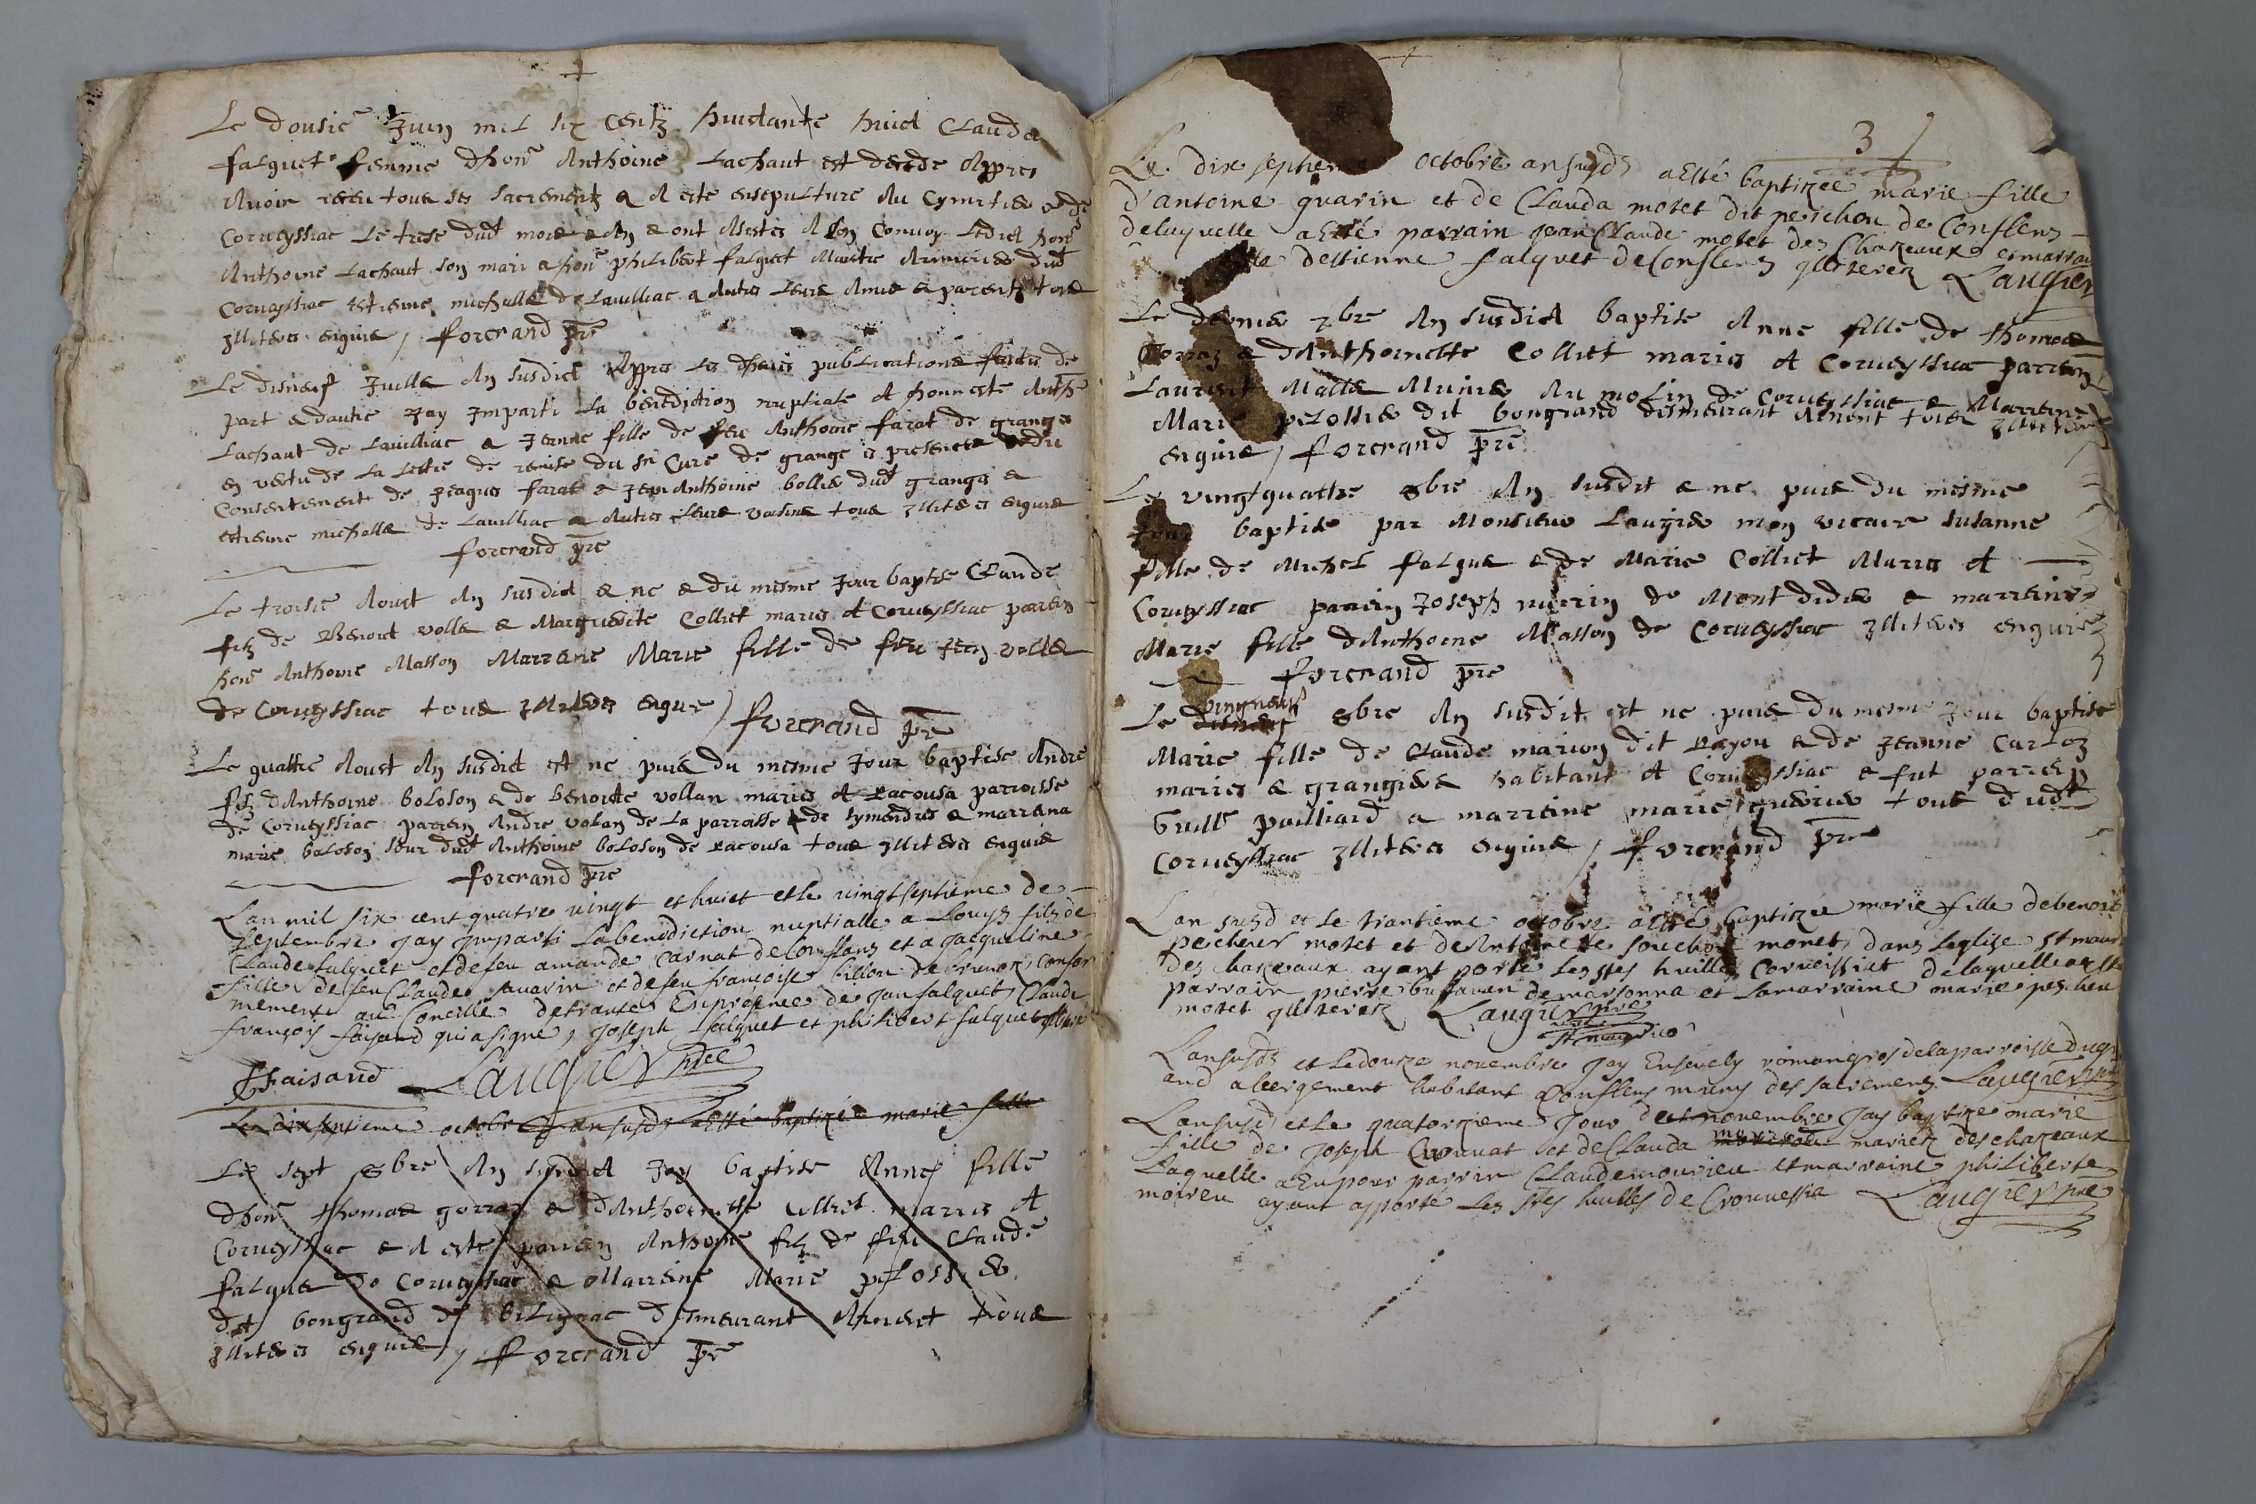 Le dousie Juin mil six centz huictante huict Clauda
falquet femme dhon Anthoine Lachaut est decede Appres
Avoir receu tous ses sacrementz & A este ensepulture Au Cymetier de
Corveyssiac Le trese dud mois & An & ont Assistes A son Convoy Ledict hon
Anthoine Lachaut son mari & hon philibert falquet Maistre Armurier dud
Corveyssiac estienne michalle de Lauilliac & Autres leurs Amis & parentz tous
Illiteres enquis / forcrand pre
Le disneuf Juille An susdict Appres les publications faictes de
part & dautre Jay Imparti La benediction nuptiale A honneste Anth
Lachaut de Lauilliac & Jeanne fille de feu Anthoine farat de granges
en vertu de La Lettre de remise du sr Cure de granges presence & du
Consentement de Jeaques farat & Jean Anthoine bollie dud granges &
estienne michalle de Lauilliac & Autres leurs voisins tous Illiteres enquis
forcrand pre
Le troisie Aoust An susdict & ne & du mesme Jour baptise Claude
filz de Benoict volle & Marguerite Colliet maries A Corveyssiac parrein
hon Anthoine Masson Marreine Marie fille de feu Jean volle
de Corveyssiac tous Illiteres enquis / forcrand pre
Le quattre Aoust An susdict est ne puis du mesme Jour baptise Andre
filz dAnthoine boloson & de benoitte vollan maries A racousa parroisse
de Corveyssiac parrein Andre volan de La parroisse de symandres & marreina
marie boloson sour dud Anthoine boloson de racousa tous Illiteres enquis
forcrand pre
Lan mil six cent quatre vingt et huict et le vingt septieme de
septembre Jay Imparti La benediction nuptialle a Louys filz de
Claude falquet et de feu amande Carnat de Conflans et a Jacqueline
fille de feu Claude savarin et de feu francoise billon de confor
mement au Concille de trante En presence de Jan falquet, Claude
françois faisand qui a signe, Joseph falquet et philibert falquet
Faisand Laugier ptre
Le dix septieme octobre an susd a esté baptizée marie fille
Le sept 8bre An susdict Jay baptise Anne fille
dhon thomas gorraz & dAnthoinette Colliet maries A
Corveyssiac & A este parrein Anthoine filz de feu Claude
falque de Corveyssiac & Marreine Marie pelossier
dit bongrand de bilignac demeurant Ament tous
Illiteres enquis / forcrand pre
3
Le dix septieme octobre an susd a esté baptizée marie fille
d'antoine quarin et de Clauda motet dit perichon de Conflens
de laquelle a esté parrain Jean Claude motet des Chazeaux et marrai
destienne falquet de Conflens Illiterez Laugier
Le dernie 7bre An susdict baptise Anne fille de thomas
gorraz & dAnthoinette Colliet maries A Corveyssiac parrein
Laurent Malle Munie Au molin de Corveyssiac & Marreine
Marie pelossie dit bongrand demeurant Ament tous Illiteres
enquis / forcrand pre
Le vingt quattre 8bre An susdit & ne puis du mesme
Jour baptise par Monsieur Laugier mon vicaire susanne
fille de Michel falque & de Marie Colliet Maries A
Corveyssiac parrein Joseph mirrin de Montdidier & marreine
Marie fille dAnthoine Masson de Corveyssiac Illiteres enquis
forcrand pre
vingtneuf
Le disneuf 8bre An susdit est ne puis du mesme Jour baptise
Marie fille de Claude marion dit rayou & de Jeanne Carloz
maries & grangiers habitant A Corveyssiac & fut parrein
Guille pailliard & marreine marie guerier tous dud
Corveyssiac Illiteres enquis / forcrand pre
Lan susd et le trantieme octobre a esté baptizée marie fille de benoit
pecheur motet et de Antoinette souchon monet, dans leglise st maur
des chazeaux ayant porté les stes huilles Corveissiat de laquelle a esté
parrain pierre buffavan de marsonna et la marraine marie pescheu
motet Illiterez Laugier ptre
vicaire
st maurice
Lan susd et le douze novembre Jay Ensevely romangros de la parroisse du gr
and abergement habitant Conflens munis des sacrements Laugier ptre
Lan susd et le quatorzieme Jour de novembre Jay baptize marie
fille de Joseph Crounat et de Clauda mariez des chazeaux
Laquelle a Eu pour parrin Claude mourieu et marraine philiberte
moireu ayant apporté Les stes huilles de Crouvessia Laugier ptre